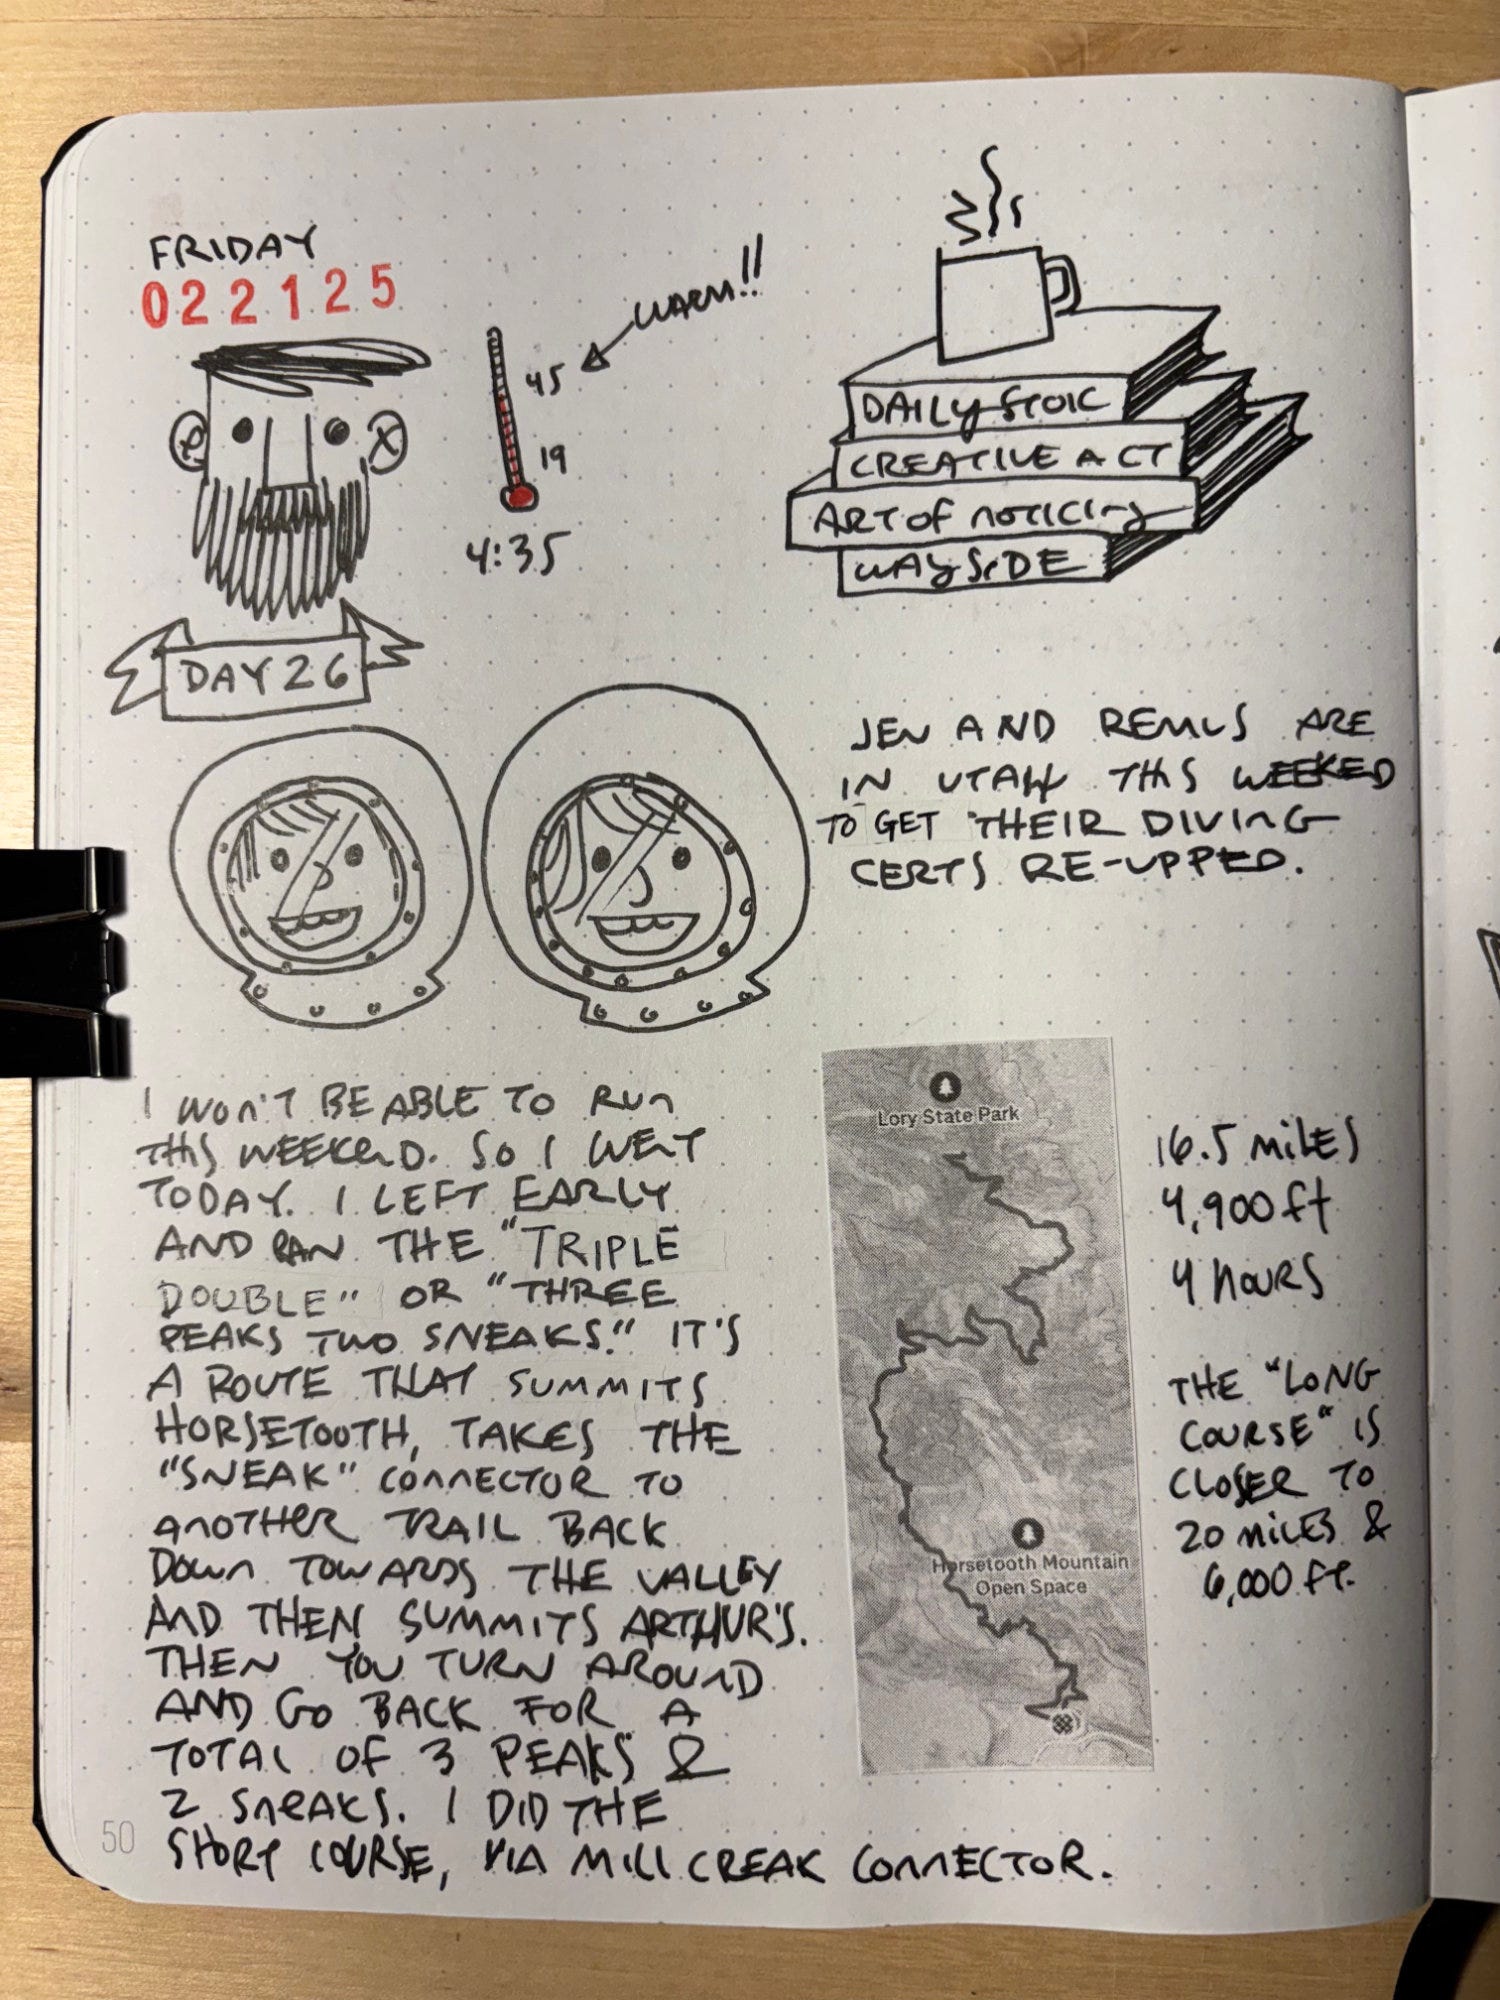 FRIDAY
022125
WARM!!
45
19
4:35
DAILY STOIC
CREATIVE ACT
ART OF NOTICING
WAYSIDE
DAY 26
JEN AND REMUS ARE
IN UTAH THIS WEEKED
TO GET THEIR DIVING
CERTS RE-UPPED.
I WON'T BE ABLE TO RUN
THIS WEEKEND. SO I WENT
TODAY. I LEFT EARLY
AND RAN THE "TRIPLE
DOUBLE" OR "THREE
PEAKS TWO SNEAKS." IT'S
A ROUTE THAT SUMMITS
HORSETOOTH, TAKES THE
"SNEAK" CONNECTOR TO
ANOTHER TRAIL BACK
DOWN TOWARDS THE VALLEY
AND THEN SUMMITS ARTHUR'S.
THEN YOU TURN AROUND
AND GO BACK FOR A
TOTAL OF 3 PEAKS &
2 SNEAKS. I DID THE
SHORT COURSE, VIA MILL CREAK CONNECTOR.
Lory State Park
Horsetooth Mountain
Open Space
16.5 MILES
4,900 ft
4 HOURS
THE "LONG
COURSE" IS
CLOSER TO
20 MILES &
6,000 FT.
50